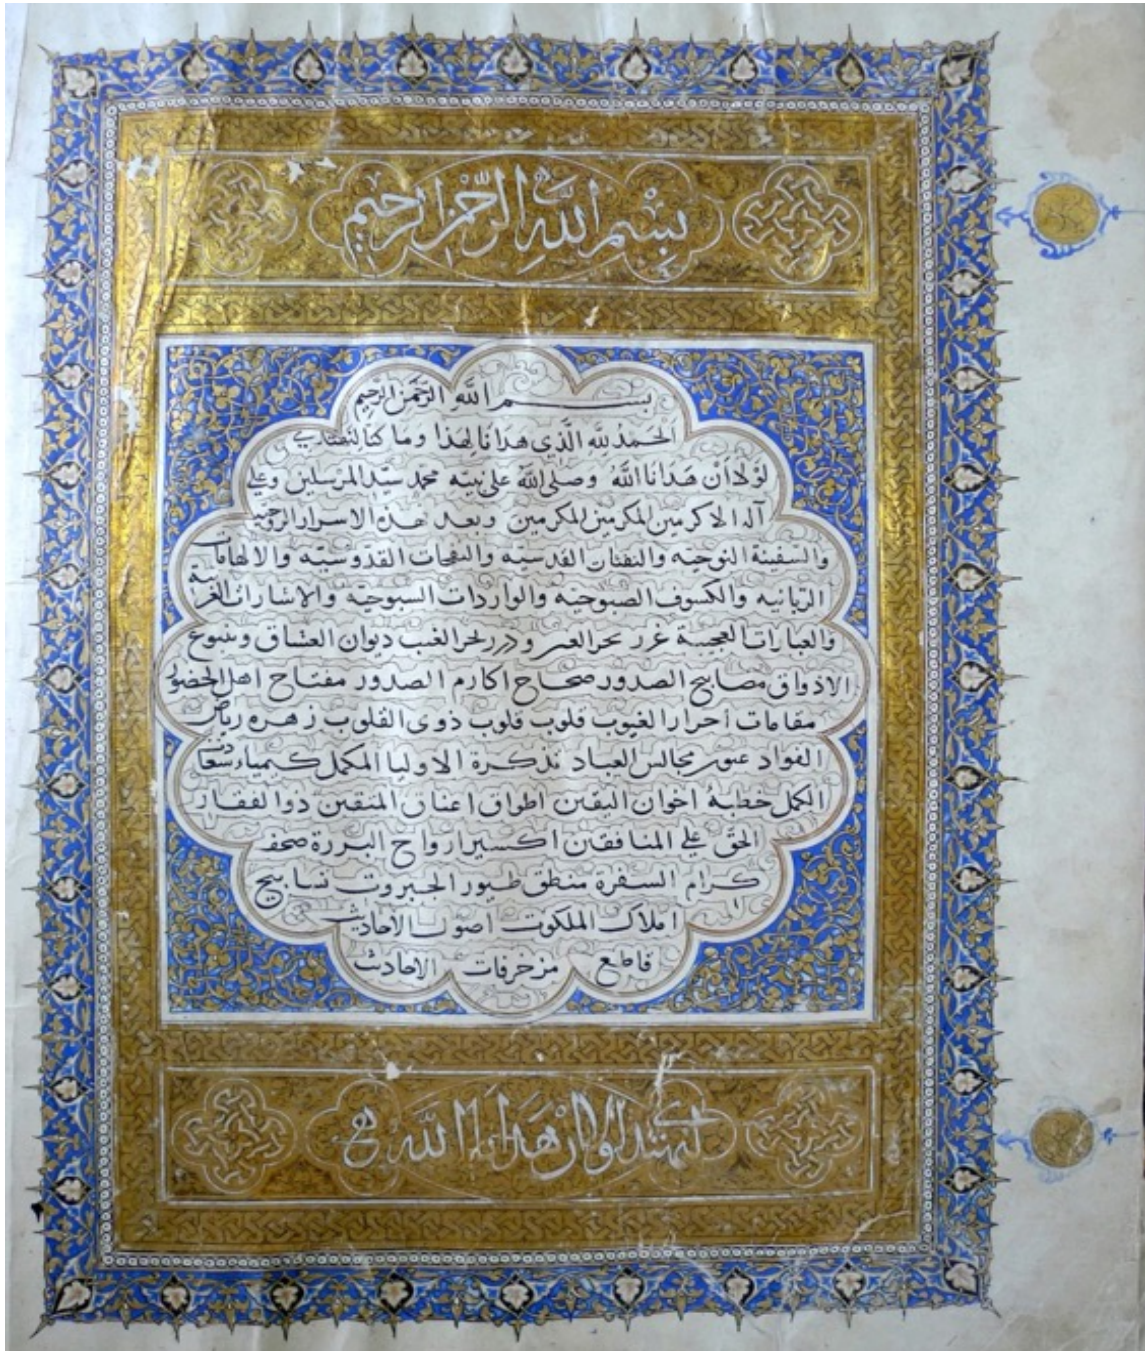 بِسْمِ اللَّهِ الرَّحْمَنِ الرَّحِيمِ
بسم الله الرحمن الرحيم
الحمد لله الذي هدانا لهذا وما كنا لنهتدي
لولا أن هدانا الله وصلى الله على نبيه محمد سيد المرسلين وعلى
آله الاكرمين المكرمين المكرمين وبعد هذه الاسرار الروحيه
والسفينة النوحيه والنفثات القدسيه والنفحات القدوسيه والالهامات
الربانيه والكسوف الصبوحيه والواردات السبوحيه والاشارات الغريبة
والعبارات العجيبة غرر بحر العبر ودرر بحر الغيب ديوان العشاق وينبوع
الاذواق مصابيح الصدور صحاح اكارم الصدور مفتاح اهل الحضور
مقامات احرار الغيوب قلوب قلوب ذوى القلوب زهره رياض
الفواد مجالس العباد تذكرة الاوليا المكمل كيمياء سعادت
الكمل خطبة اخوان اليقين اطواق اعناق المتقين ذوالفقار
الحق على المنافقين اكسير ارواح البررة صحف
كرام السفرة منطق طيور الجبروت تسابيح
املاك الملكوت اصول الاحاديث
قاطع مزخرفات الاحاديث
لنهتدي لولا ان هدانا الله